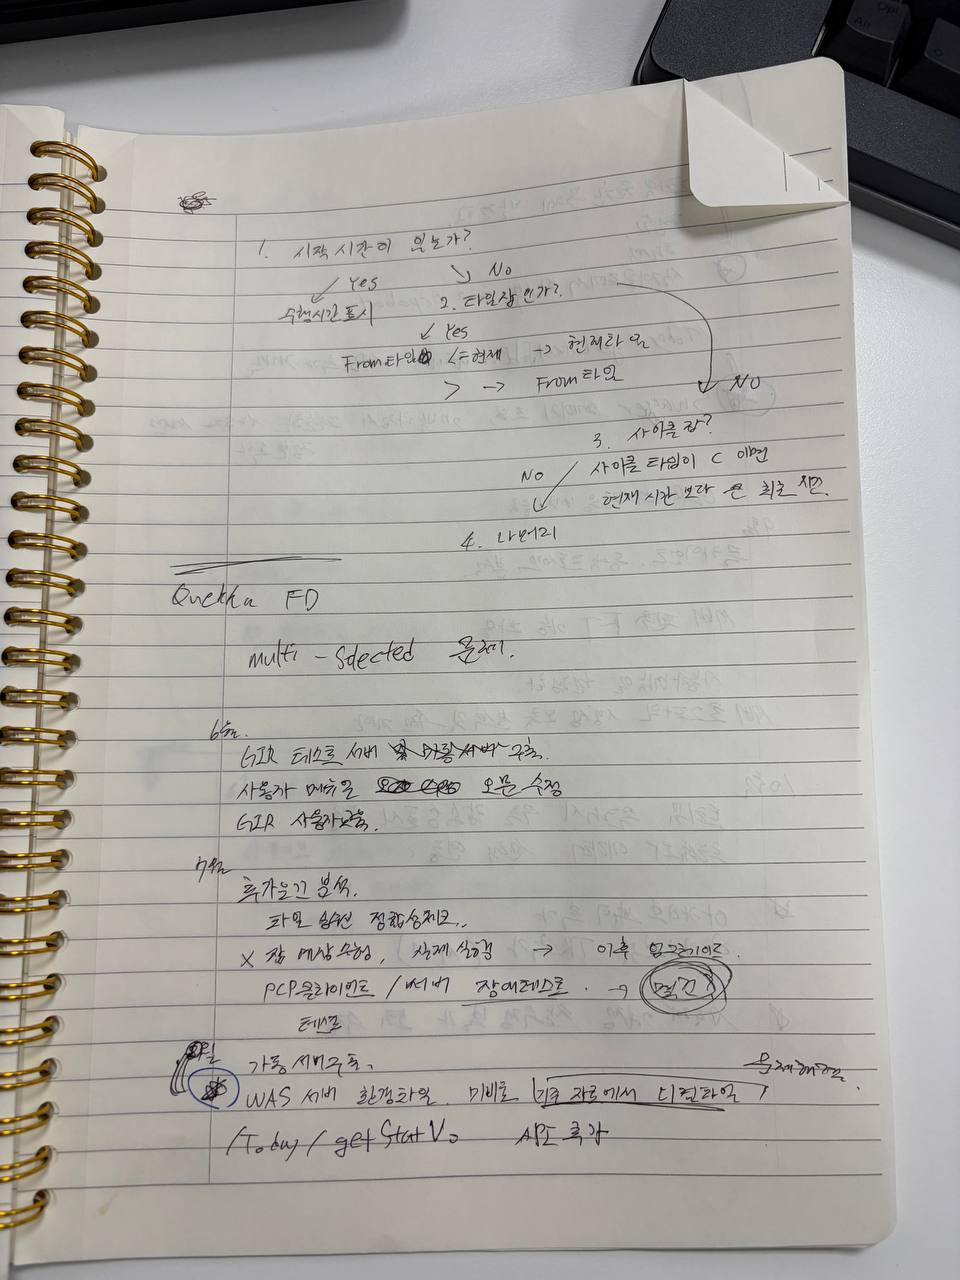 1. 시작시간이 있는가?
Yes No
수행시간표시 2. 타임잡인가?
Yes
From타임 <= 현재 → 현재타임
> → From타임
No
3. 사이클잡?
No 사이클 타입이 C 이면
현재 시간 보다 큰 최초 시간.
4. 나머지
FD
multi - Selected 문제.
6월
GIR 테스트 서버 구축.
사용자 메뉴얼 오문 수정
GIR 사용자교육.
7월
추가요건 분석.
파일 정합성체크.
x 잡 예상수행, 실제실행 → 이후 업그레이드.
PCP클라이언트 / 서버 장애테스트. →
테스트
가동 서버구축.
WAS 서버 환경파일 미비로 기존 자료에서 디컴파일
문제해결.
/Today/getStartVo API 추가